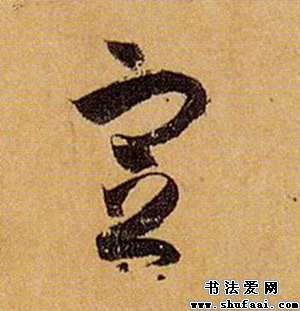 宣
书法爱网
www.shufaai.com